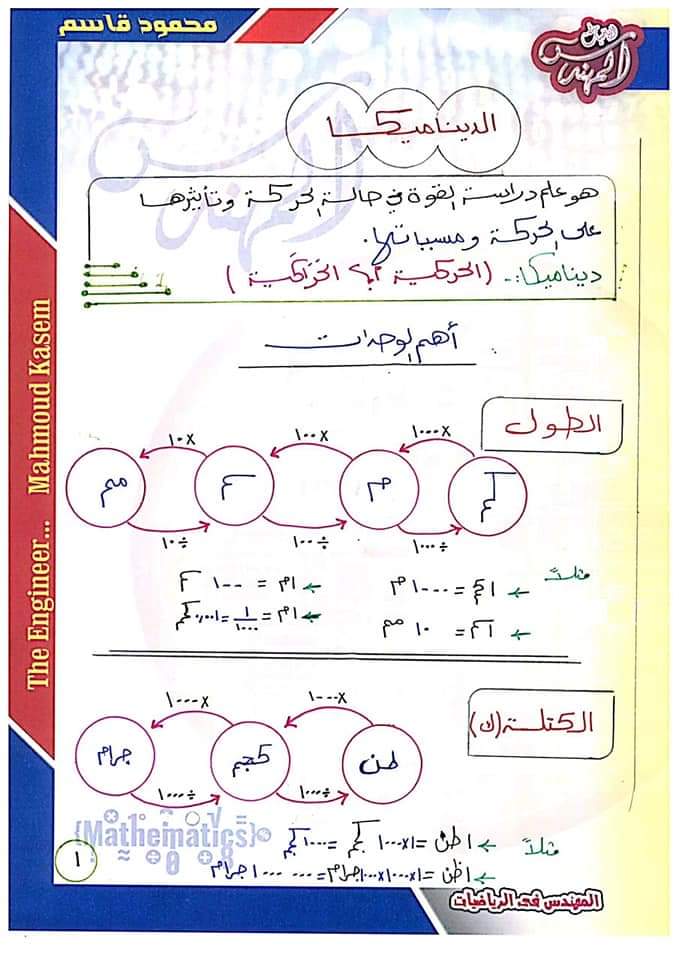 محمود قاسم
المهندس
الديناميكا
هو علم دراسة القوة في حالة الحركة وتأثيرها
على الحركة ومسبباتها.
ديناميكا:- (الحركية أم؟ الحَرَاكية)
أهم الوحدات
الطول
١٠× ١٠٠× ١٠٠٠×
مم سم م كم
١٠÷ ١٠٠÷ ١٠٠٠÷
مثلاً ← ١كم = ١٠٠٠ م ← ١م = ١٠٠ سم
← ١سم = ١٠ مم ← ١م = ١/١٠٠٠ = ٠,٠٠١ كم
الكتلة (ك)
١٠٠٠× ١٠٠٠×
جرام كجم طن
١٠٠٠÷ ١٠٠٠÷
مثلاً ← ١ طن = ١×١٠٠٠ كجم = ١٠٠٠ كجم
← ١ طن = ١×١٠٠٠×١٠٠٠ جرام = ١٠٠٠٠٠٠ جرام
{Mathematics}
١
المهندس فى الرياضيات
The Engineer... Mahmoud Kasem